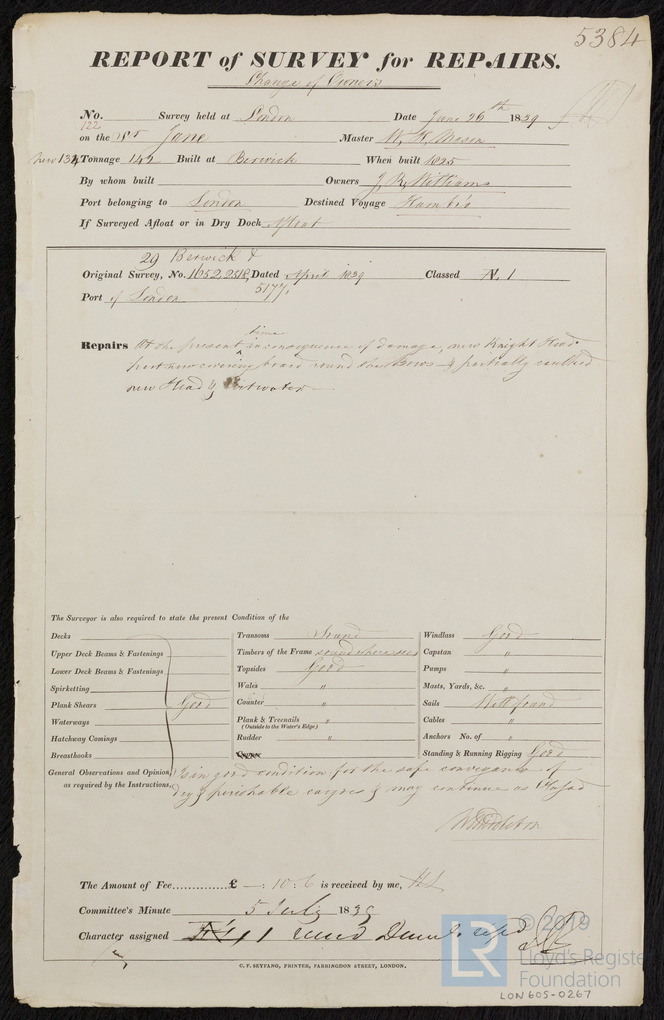 5384
REPORT of SURVEY for REPAIRS.
Change of Owners
No. Survey held at London Date June 26th 1839
122
on the Sr Jane Master W. H. Mason
new 134 Tonnage 142 Built at Berwick When built 1825
By whom built Owners J. R. Williams
Port belonging to London Destined Voyage Hambro
If Surveyed Afloat or in Dry Dock Afloat
29 Berwick &
Original Survey, No. 1652, 2518, Dated April 1839 Classed Æ 1
5177.
Port of London
time
Repairs At the present in consequence of damage, new Knight Heads
part new covering board round the bows & partially caulked
new Head & Cutwater
The Surveyor is also required to state the present Condition of the
Decks
Upper Deck Beams & Fastenings
Lower Deck Beams & Fastenings
Spirketting
Plank Shears Good
Waterways
Hatchway Comings
Breasthooks
Transoms Sound
Timbers of the Frame sound where seen
Topsides Good
Wales "
Counter "
Plank & Treenails "
(Outside to the Water's Edge)
Rudder "
Windlass Good
Capstan "
Pumps "
Masts, Yards, &c. "
Sails Well found
Cables "
Anchors No. of "
Standing & Running Rigging Good
General Observations and Opinion, Is in good condition for the safe conveyance of
as required by the Instructions, dry & perishable cargoes & may continue as Classed
W Middleton
The Amount of Fee............£ —: 10: 6 is received by me,
Committee's Minute 5 July 1839
Character assigned 1
C. F. SEYFANG, PRINTER, FARRINGDON STREET, LONDON.
LR
© 2019
Lloyd's Register
Foundation
LON605-0267